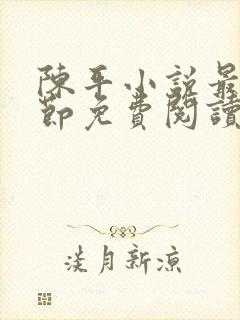 陳平小說最
節免費閱讀
淡月新涼